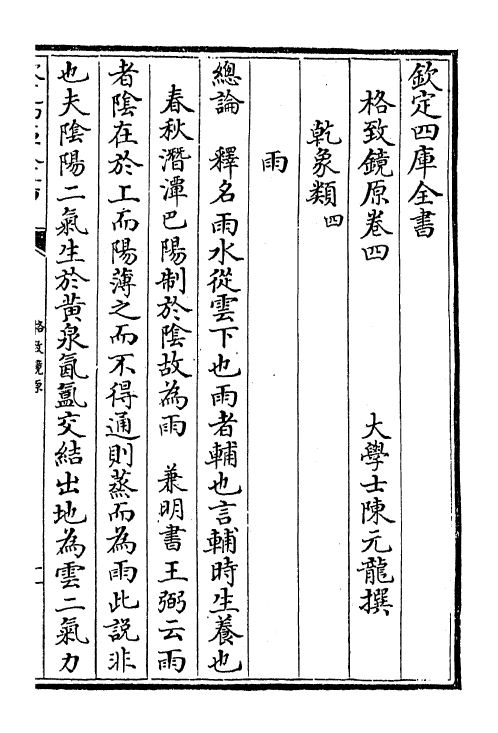 欽定四庫全書
格致鏡原卷四
大學士陳元龍撰
乾象類四
雨
總論 釋名雨水從雲下也雨者輔也言輔時生養也
春秋潛潭巴陽制於陰故為雨 蒹明書王弼云雨
者陰在於上而陽薄之而不得通則蒸而為雨此說非
也夫陰陽二氣生於黃泉氤氳交結出地為雲二氣力
格致鏡原